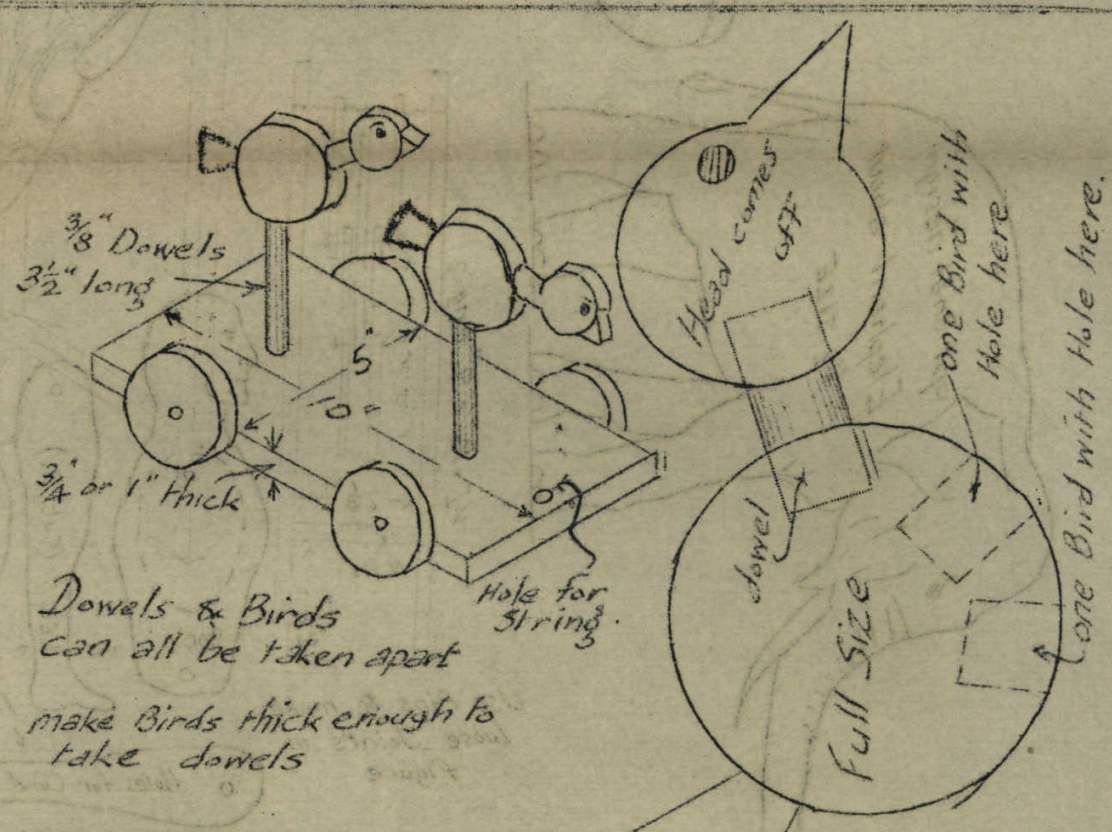 3/8" Dowels
3 1/2" long
5"
10"
3/4" or 1" thick
Hole for
String.
Dowels & Birds
can all be taken apart
make Birds thick enough to
take dowels
Head comes
off
dowel
Full Size
one Bird with
Hole here
one Bird with Hole here.